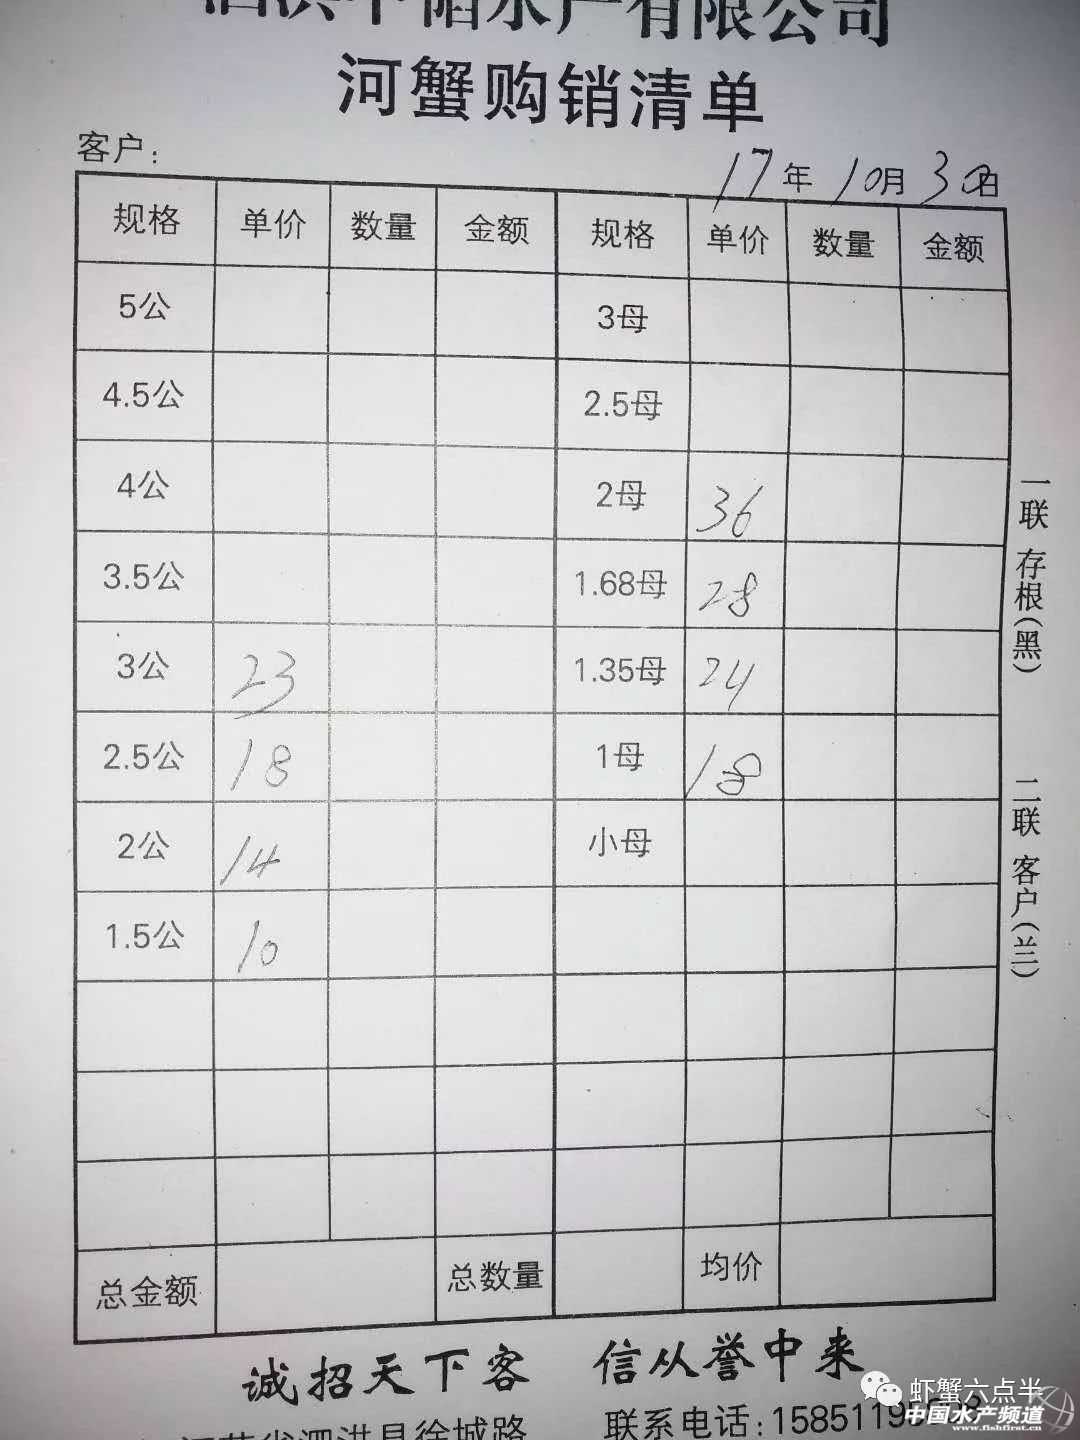 水产有限公司
河蟹购销清单
客户：
17年10月30日
规格 单价 数量 金额 规格 单价 数量 金额
5公 3母
4.5公 2.5母
4公 2母 36
3.5公 1.68母 28
3公 23 1.35母 24
2.5公 18 1母 18
2公 14 小母
1.5公 10
总金额 总数量 均价
一联 存根(黑) 二联 客户(兰)
诚招天下客 信从誉中来
省泗洪县徐城路 联系电话:15851195
虾蟹六点半
中国水产频道
www.fishfirst.cn